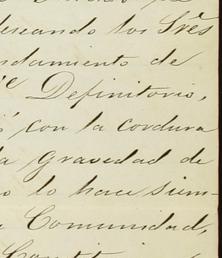 deseando los Sres
ndamiento de
Definitorio,
con la cordura
la gravedad de
o lo hace siem-
Comunidad,